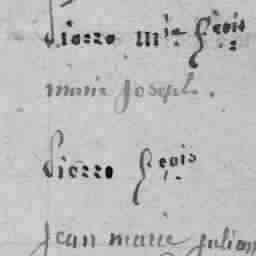 Pierre m^ie f^çois
marie joseph.
Pierre f^çois
jean marie julien